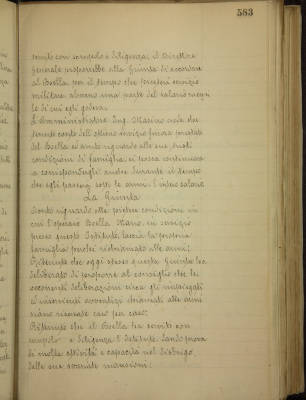 583
servito con scrupolo e diligenza, il Direttore
generale proporrebbe alla Giunta di accordare
al Boella per il tempo che presterà servizio
militare almeno una parte del salario mensi
le di cui egli godeva.
L'Amministratore Ing. Masino crede che
tenuto conto dell'ottimo servizio finora prestato
dal Boella ed avuto riguardo alle sue tristi
condizioni di famiglia, si possa continuare
a corrispondergli anche durante il tempo
che egli passerà sotto le armi, l'intero salario
La Giunta
Avuto riguardo alle penose condizioni in
cui l'operaio Boella Mario, in servizio
presso questo Istituto, lascia la propria
famiglia perché richiamato alle armi;
Ritenuto che oggi stesso questa Giunta ha
deliberato di proporre al Consiglio che le
occorrenti deliberazioni circa gli impiegati
ed inservienti avventizi chiamati alle armi
siano riservate caso per caso;
Ritenuto che il Boella ha servito con
scrupolo e diligenza l'Istituto, dando prova
di molta attività e capacità nel disbrigo
delle sue svariate mansioni;